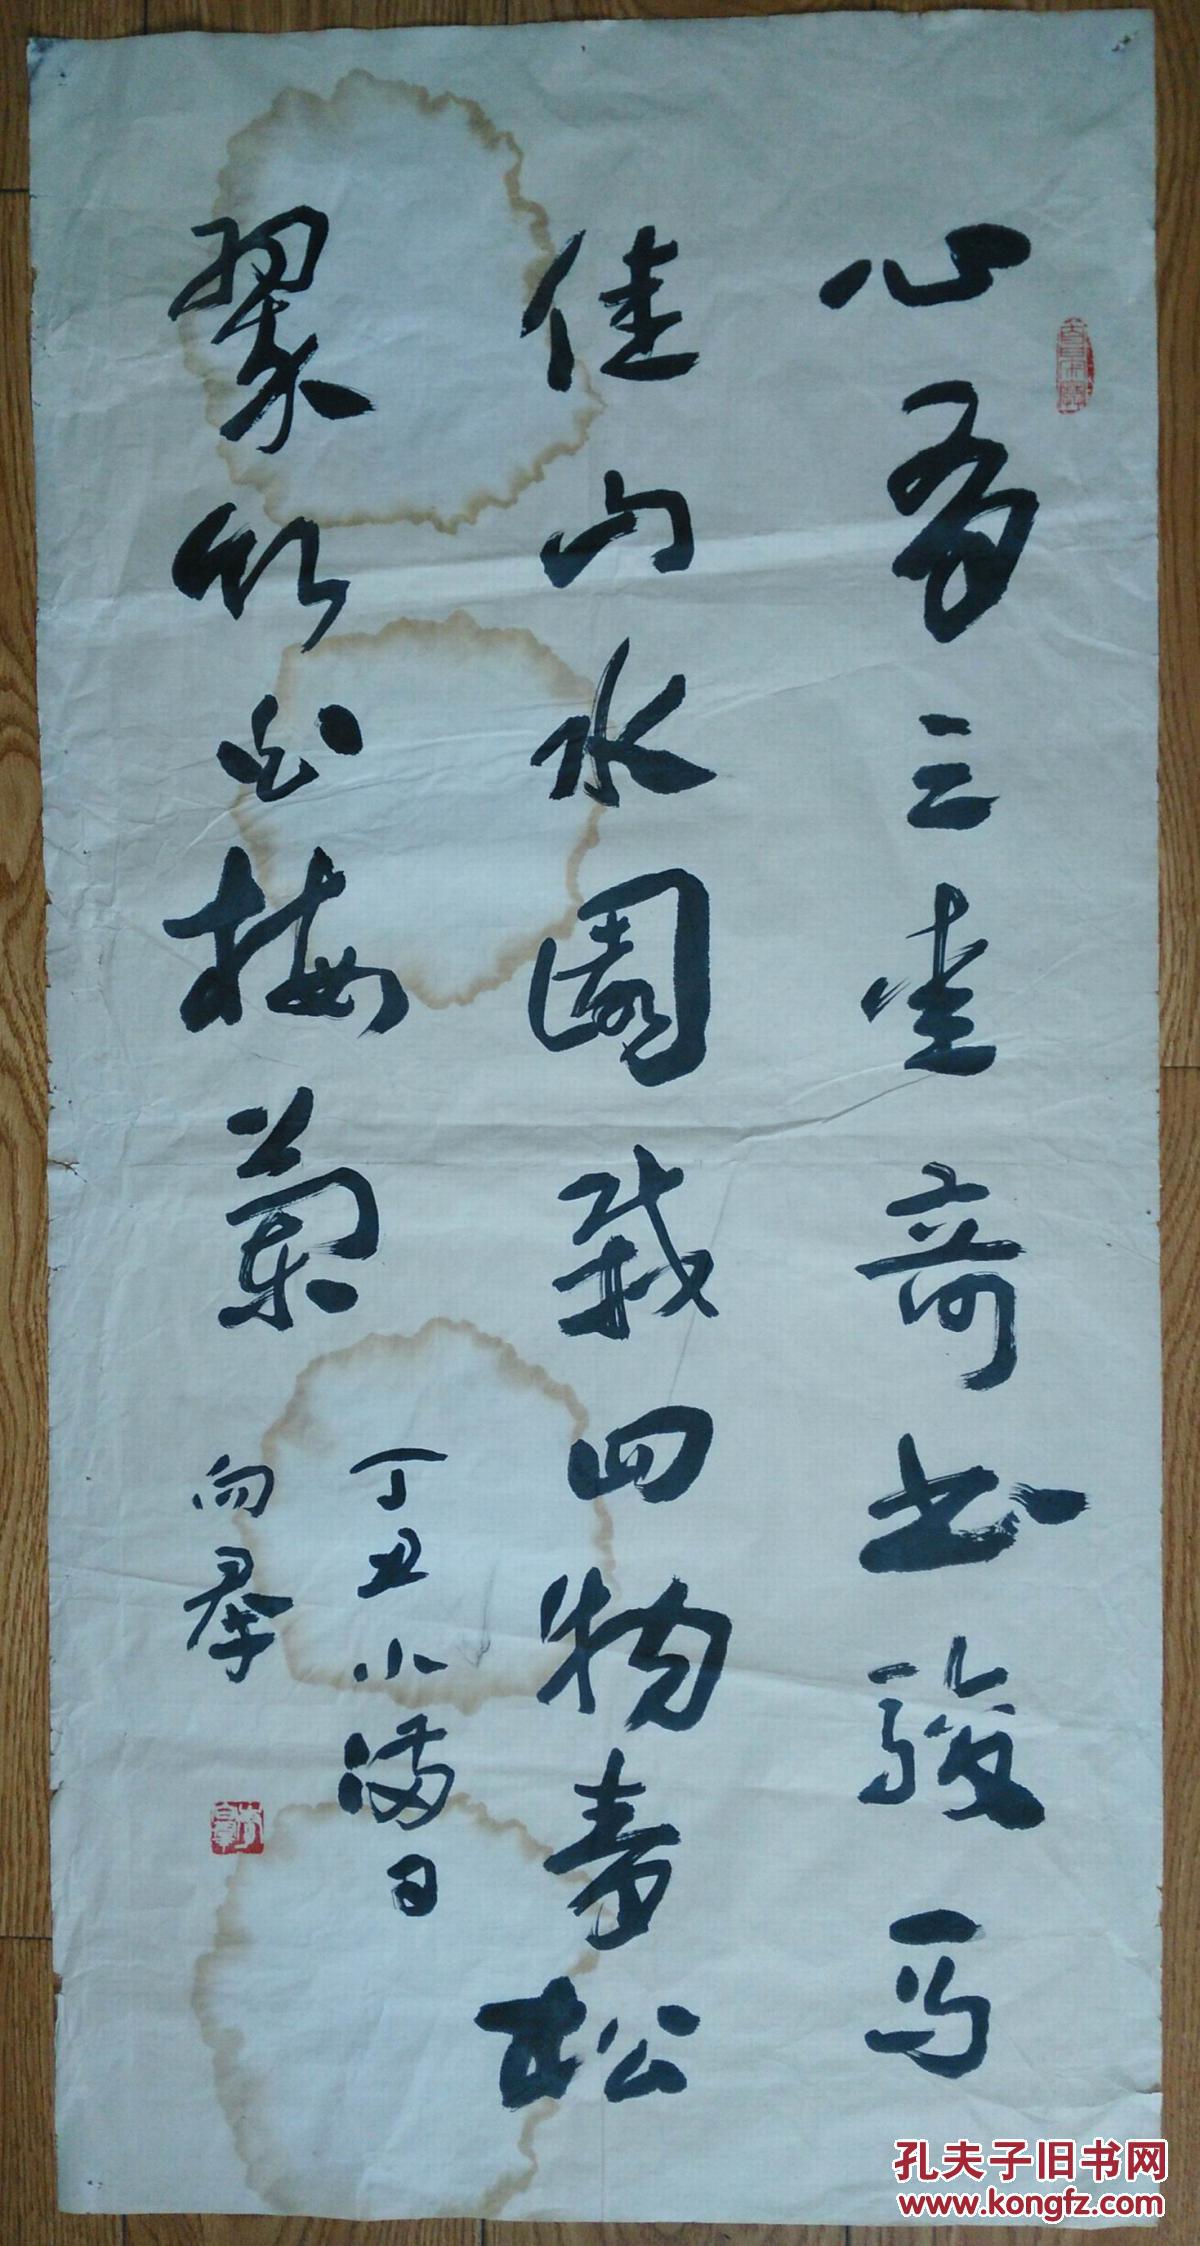 心有三爱奇书骏马
佳山水园栽四物青松
翠竹白梅兰
丁丑小满日
向群
孔夫子旧书网
www.kongfz.com